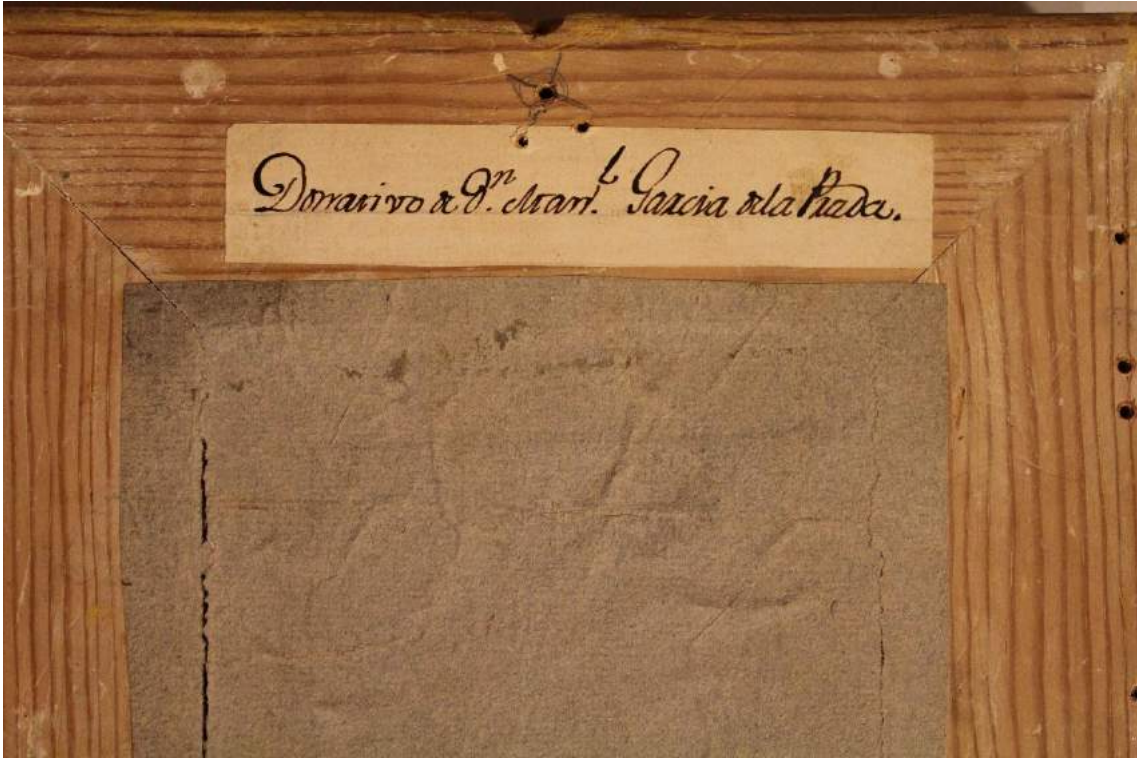 Donativo de Dn. Manl. Garcia de la Prada.